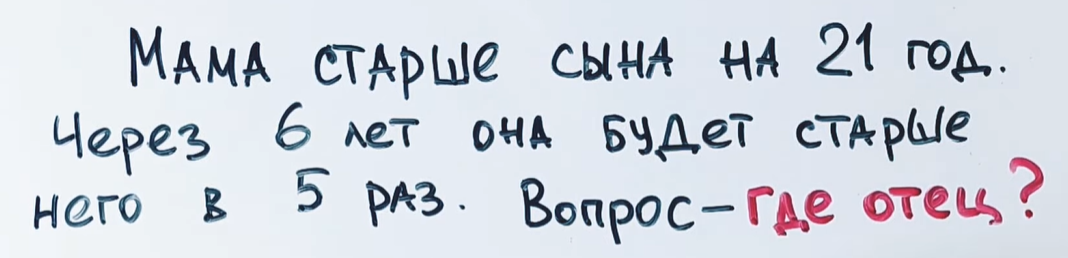 Мама старше сына на 21 год.
Через 6 лет она будет старше
него в 5 раз. Вопрос – где отец?